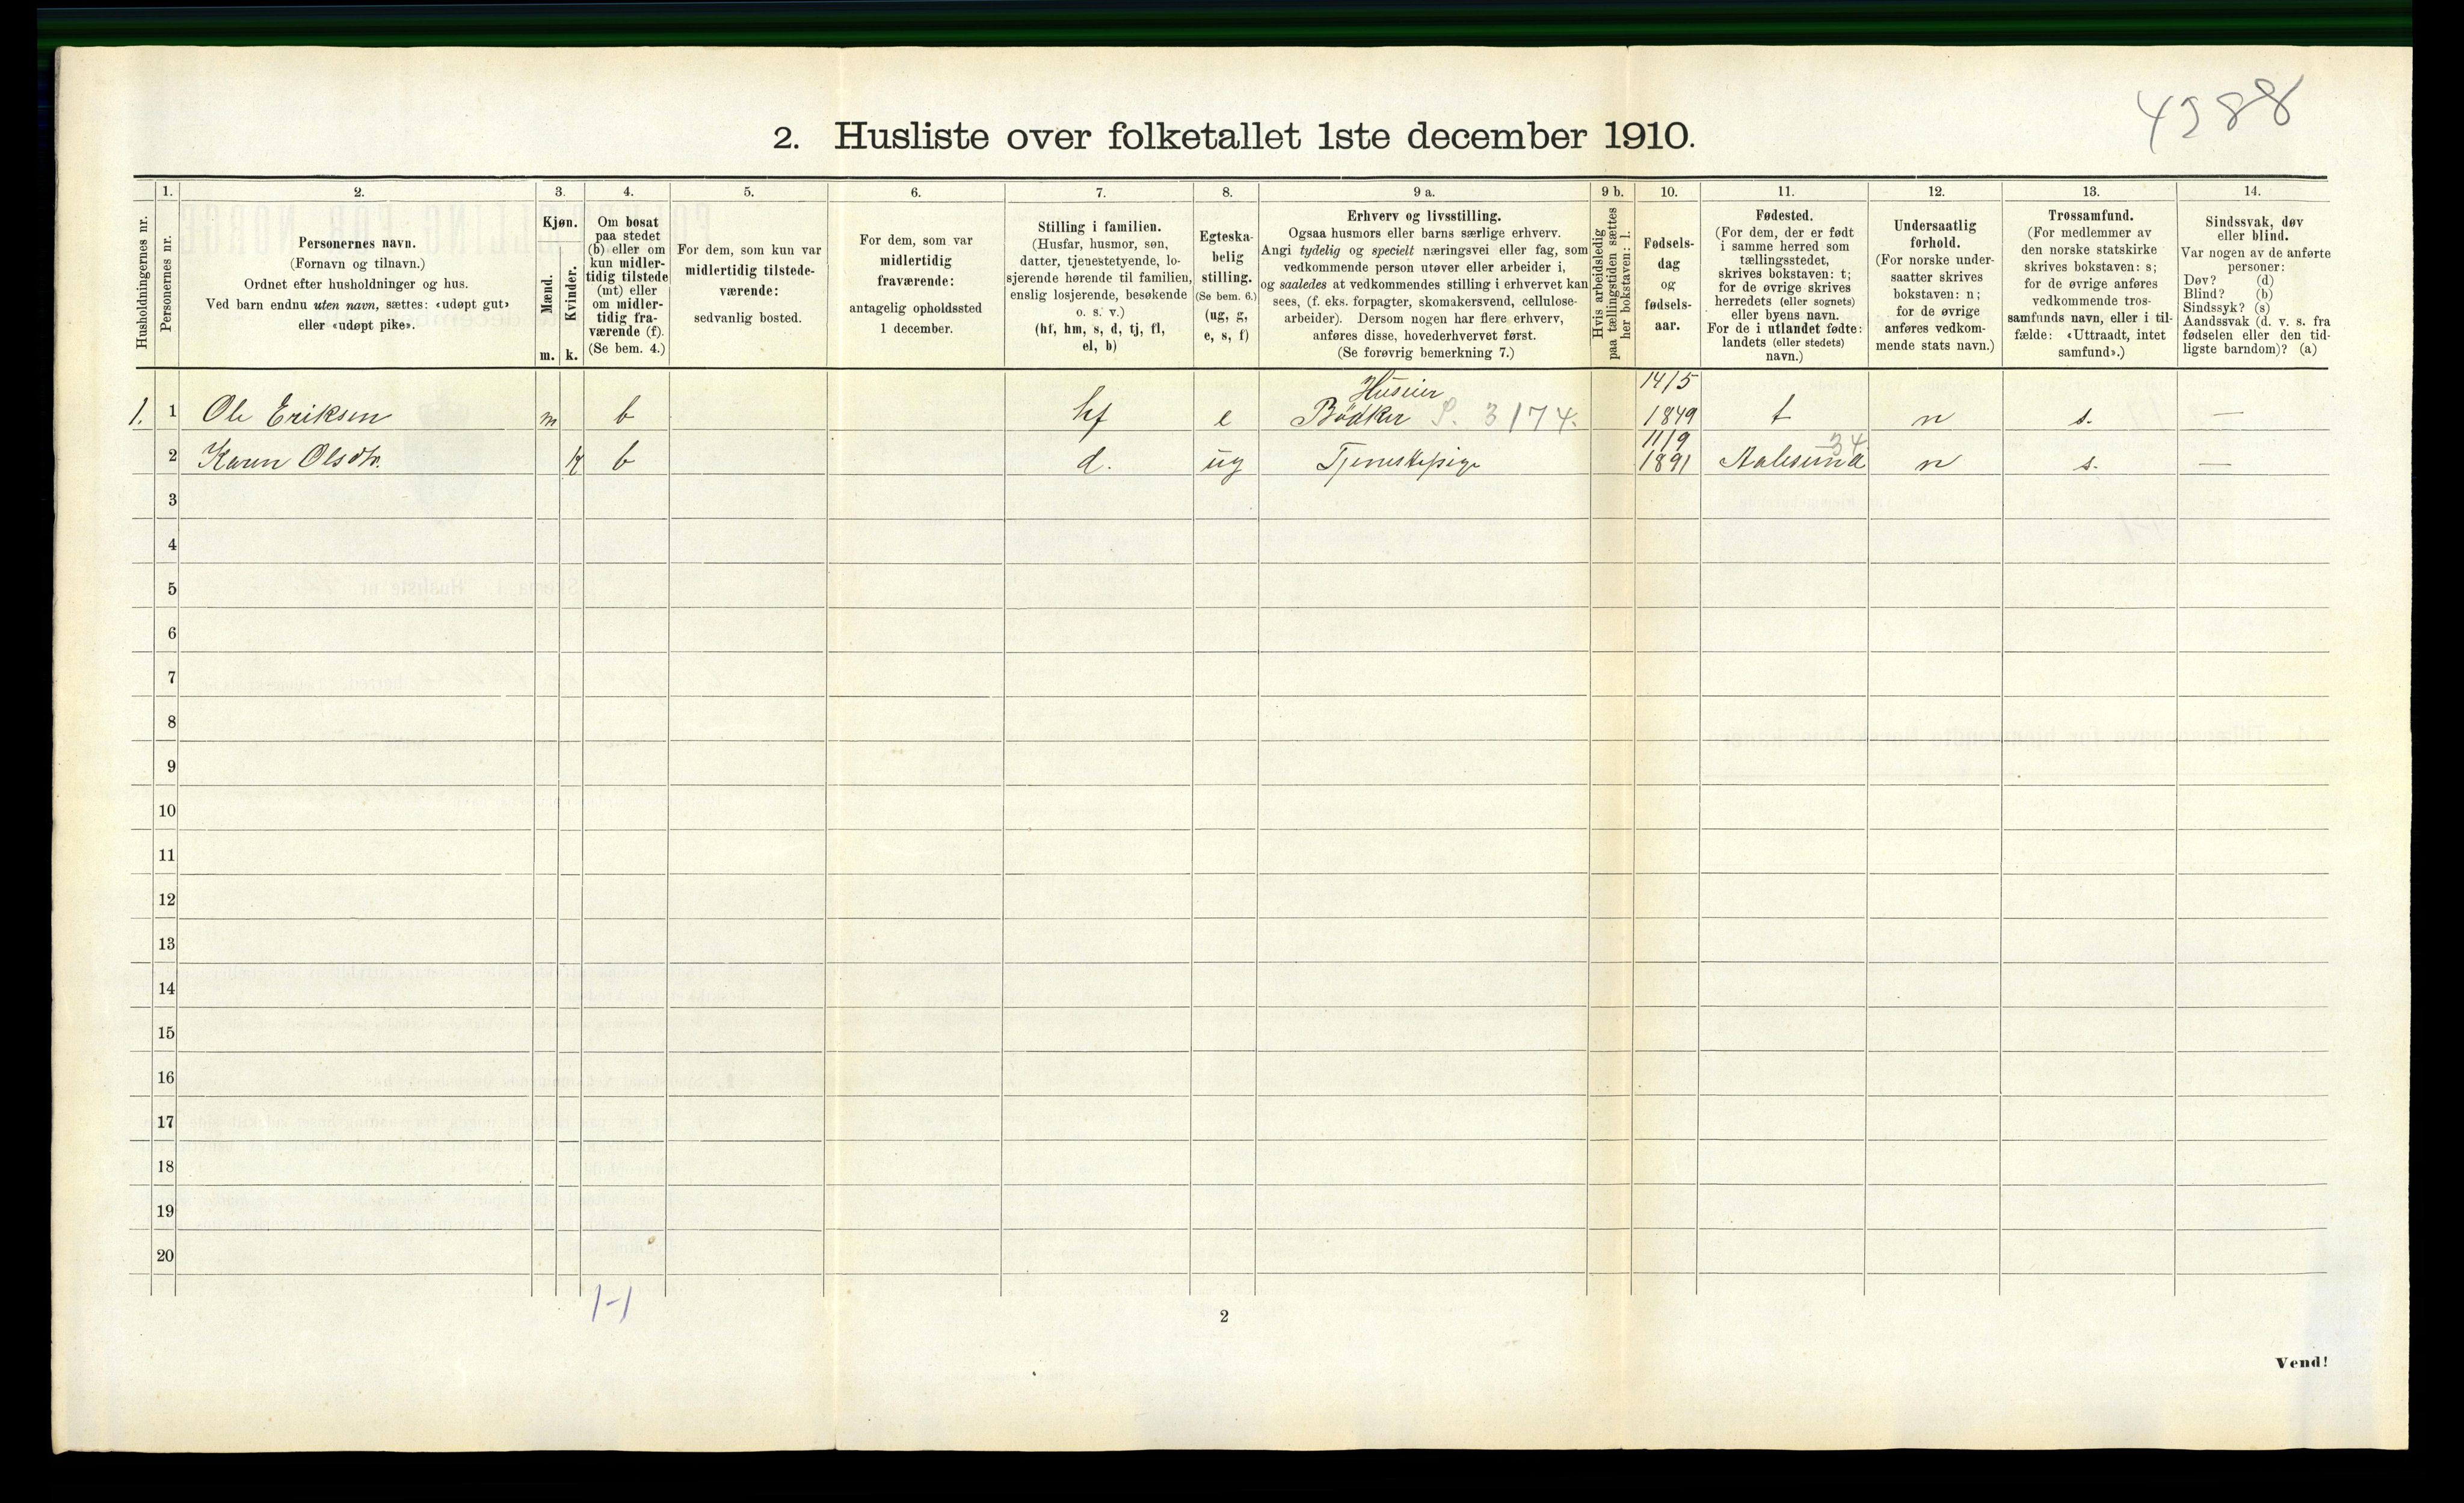 4388
2. Husliste over folketallet 1ste december 1910.
Husholdningernes nr.
1.
Personernes nr.
2.
Personernes navn.
(Fornavn og tilnavn.)
Ordnet efter husholdninger og hus.
Ved barn endnu uten navn, sættes: «udøpt gut»
eller «udøpt pike».
3.
Kjøn.
Mænd.
Kvinder.
m. k.
4.
Om bosat
paa stedet
(b) eller om
kun midler-
tidig tilstede
(mt) eller
om midler-
tidig fra-
værende (f).
(Se bem. 4.)
5.
For dem, som kun var
midlertidig tilstede-
værende:
sedvanlig bosted.
6.
For dem, som var
midlertidig
fraværende:
antagelig opholdssted
1 december.
7.
Stilling i familien.
(Husfar, husmor, søn,
datter, tjenestetyende, lo-
sjerende hørende til familien,
enslig losjerende, besøkende
o. s. v.)
(hf, hm, s, d, tj, fl,
el, b)
8.
Egteska-
belig
stilling.
(Se bem. 6.)
(ug, g,
e, s, f)
9 a.
Erhverv og livsstilling.
Ogsaa husmors eller barns særlige erhverv.
Angi tydelig og specielt næringsvei eller fag, som
vedkommende person utøver eller arbeider i,
og saaledes at vedkommendes stilling i erhvervet kan
sees, (f. eks. forpagter, skomakersvend, cellulose-
arbeider). Dersom nogen har flere erhverv,
anføres disse, hovederhvervet først.
(Se forøvrig bemerkning 7.)
9 b.
Hvis arbeidsledig
paa tællingstiden sættes
her bokstaven: l.
10.
Fødsels-
dag
og
fødsels-
aar.
11.
Fødested.
(For dem, der er født
i samme herred som
tællingsstedet,
skrives bokstaven: t;
for de øvrige skrives
herredets (eller sognets)
eller byens navn.
For de i utlandet fødte:
landets (eller stedets)
navn.)
12.
Undersaatlig
forhold.
(For norske under-
saatter skrives
bokstaven: n;
for de øvrige
anføres vedkom-
mende stats navn.)
13.
Trossamfund.
(For medlemmer av
den norske statskirke
skrives bokstaven: s;
for de øvrige anføres
vedkommende tros-
samfunds navn, eller i til-
fælde: «Uttraadt, intet
samfund».)
14.
Sindssvak, døv
eller blind.
Var nogen av de anførte
personer:
Døv? (d)
Blind? (b)
Sindssyk? (s)
Aandssvak (d. v. s. fra
fødselen eller den tid-
ligste barndom)? (a)
Huseier 14/5
1. 1 Ole Eriksen m b hf e Bödker S. 3174. 1849 t n s. —
11/9 34
2 Karen Olsdtr. k b d. ug Tjenestepige 1891 Aalesund n s. —
3
4
5
6
7
8
9
10
11
12
13
14
15
16
17
18
19
20
1-1
2
Vend!